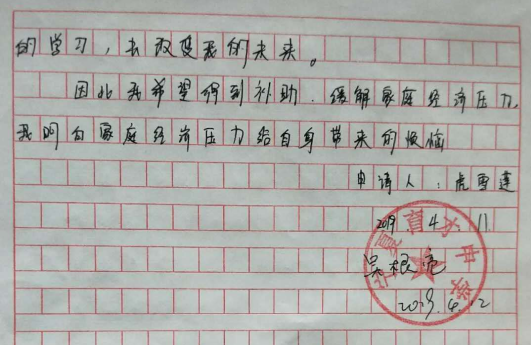 的学习，去改变我的未来。
因此我希望得到补助．缓解家庭经济压力，
我明白家庭经济压力给自身带来的烦恼
申请人：虎雪莲
2019.4.11
宁夏育才中学
吴根亮
2019.4.12